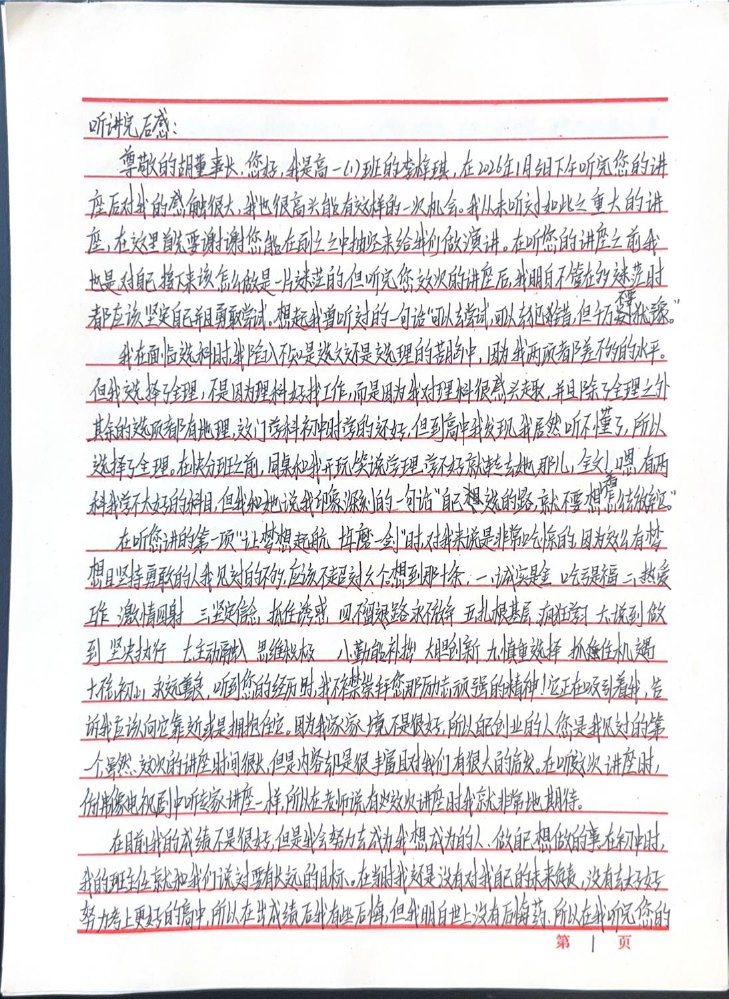 听讲完后感：
尊敬的胡董事长，您好，我是高一（1）班的李梓琪，在2026年1月8日下午听完您的讲
座后对我的感触很大，我也很高兴能有这样的一次机会。我从未听过如此之重大的讲
座，在这里首先要谢谢您能在百忙之中抽空来给我们做演讲。在听您的讲座之前我
也是对自己接下来该怎么做是一片迷茫的，但听完您这次的讲座后，我明白不管在多迷茫时
都应该坚定自己并且勇敢尝试。想起我曾听过的一句话“可以去尝试，可以去犯错，但千万不要犹豫。”
我在面临选科时，我陷入不知是选文还是选理的苦恼中，因为我两项都差不多的水平。
但我选择了全理，不是因为理科好找工作，而是因为我对理科很感兴趣，并且除了全理之外
其余的选项都有地理，这门学科初中时学的还好，但到高中我发现我居然听不懂了，所以
选择了全理。在快分班之前，同桌和我开玩笑说学理，学不好就转去她那儿，全文，嗯，有两
科我学不太好的科目，但我和她说我印象深刻的一句话“自己想选的路，就不要想着怎么去放弃它。”
在听您讲的第一项“让梦想起航 十年磨一剑”时，对我来说是非常吃惊的，因为这么有梦
想且坚持勇敢的人我见过的不多，应该不超过六个，想到那十条，一.诚实是金 吃亏是福 二.热爱
工作 激情四射 三.坚定信念 抵住诱惑 四.不留退路 永不放弃 五.扎根基层，疯狂学习 六.说到做
到 坚决执行 七.主动融入 思维积极 八.勤能补拙 大胆创新 九.慎重选择 抓住机遇
十.不忘初心，永远善良，听到您的经历时，我不禁崇拜您那励志顽强的精神！它正在吸引着我，告
诉我应该向它靠近或是拥抱住它。因为我家家境不是很好，所以自己创业的人您是我见过的第
一个，虽然这次的讲座时间很长，但是内容却是很丰富且对我们有很大的启发。在听这次讲座时，
仿佛像电视剧中听专家讲座一样，所以在老师说有这次讲座时我就非常地期待。
在目前我的成绩不是很好，但是我会努力去成为我想成为的人、做自己想做的事，在初中时，
我的班主任就和我们说过要有长远的目标，在当时我还是没有对我自己的未来负责，没有去好好
努力考上更好的高中，所以在出成绩后我有些后悔，但我明白世上没有后悔药，所以在我听完您的
第 1 页